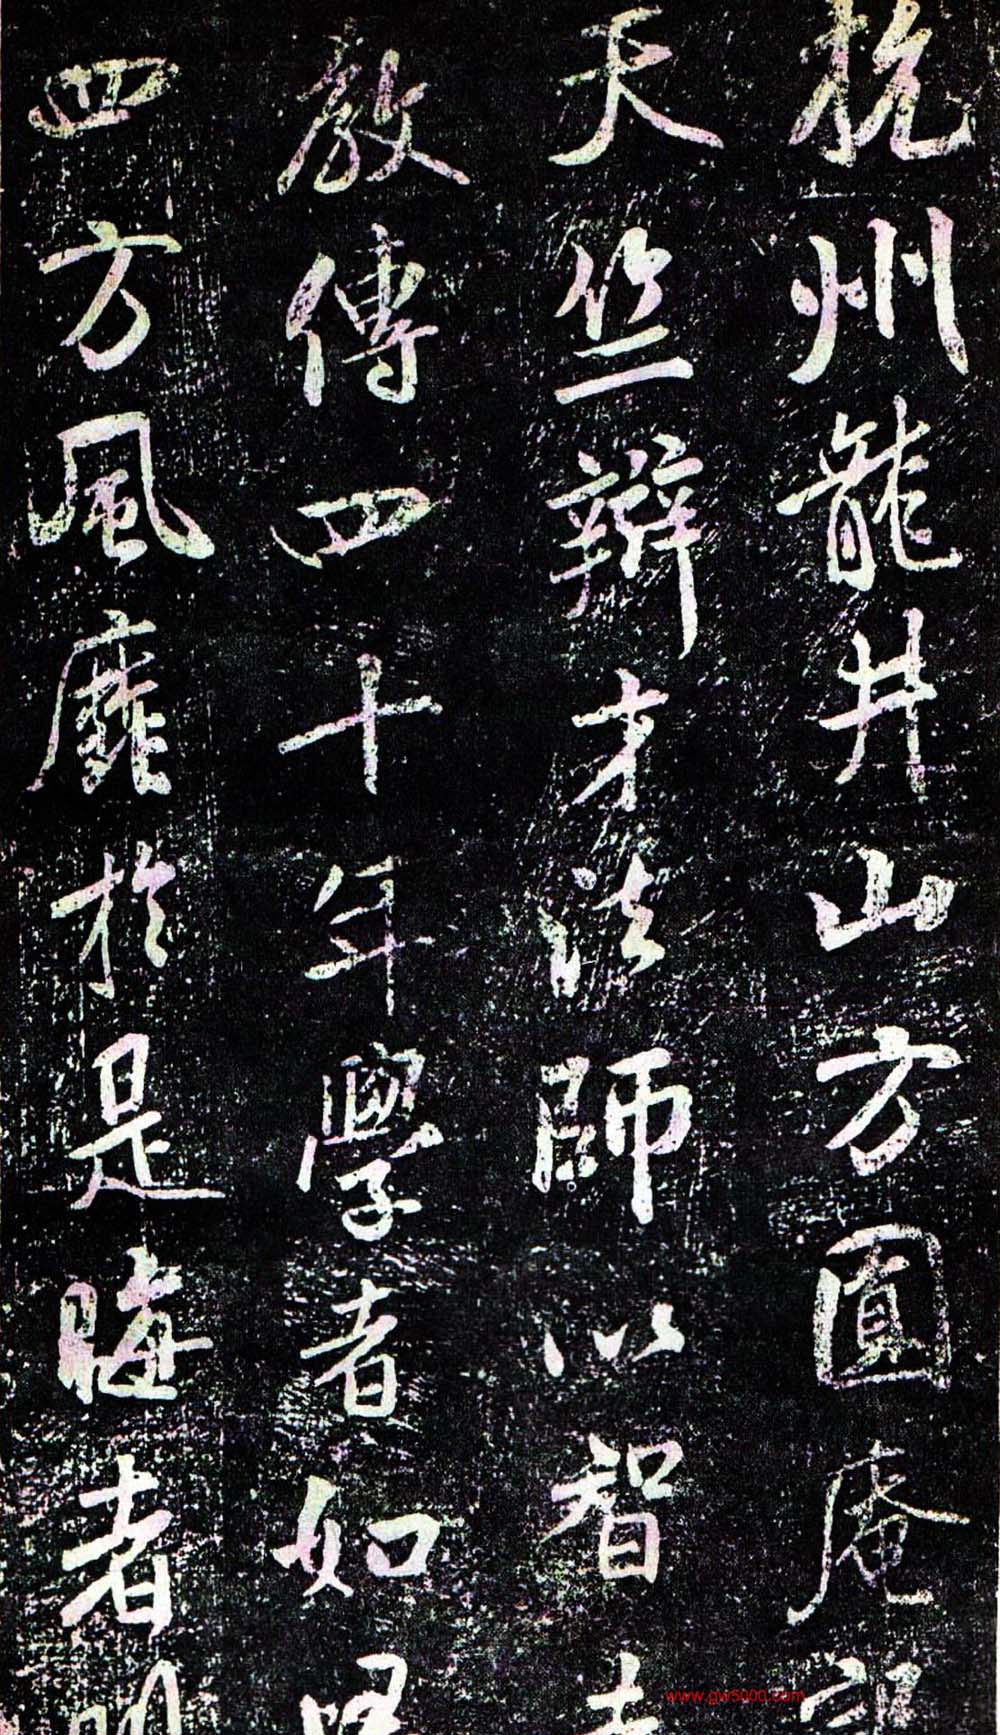 杭州龍井山方圓庵記
天竺辯才法師以智
教傳四十年學者如
四方風靡於是晦者明
www.gw5000.com